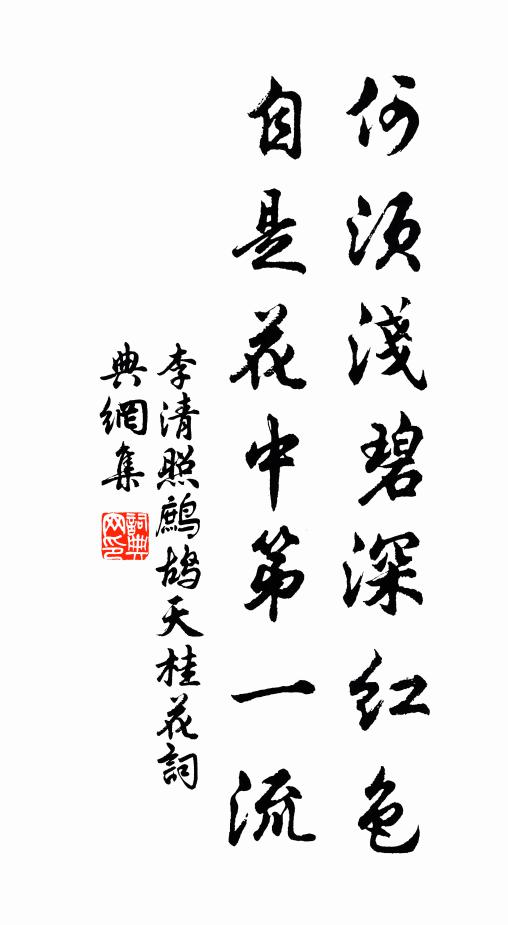 何須淺碧深紅色
自是花中第一流
李清照鷓鴣天桂花詞
典網集
詞典網印